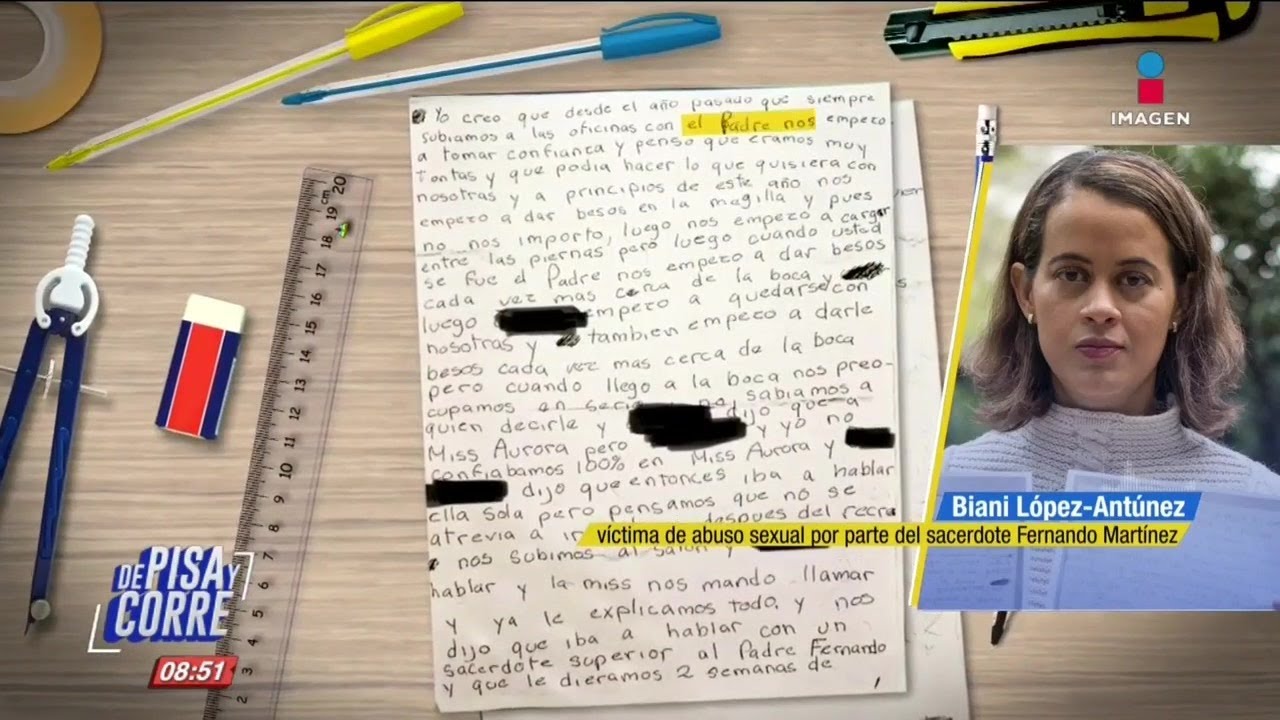 IMAGEN
Yo creo que desde el año pasado que siempre
subiamos a las oficinas con el Padre nos empezo
a tomar confianza y penso que eramos muy
tontas y que podia hacer lo que quisiera con
nosotras y a principios de este año nos
empezo a dar besos en la megilla y pues
no nos importo, luego nos empezo a cargar
entre las piernas pero luego cuando usted
se fue el Padre nos empezo a dar besos
cada vez mas cerca de la boca y
luego empezo a quedarse con
nosotras y tambien empezo a darle
besos cada vez mas cerca de la boca
pero cuando llego a la boca nos preo-
cupamos en serio no sabiamos a
quien decirle y dijo que a
Miss Aurora pero y yo no
confiabamos 100% en Miss Aurora y
dijo que entonces iba a hablar
ella sola pero pensamos que no se
atrevia a despues del recre
nos subimos al salon y
hablar y la miss nos mando llamar
y ya le explicamos todo, y nos
dijo que iba a hablar con un
sacerdote superior al Padre Fernando
y que le dieramos 2 semanas de
cm 20
19
18
17
16
15
14
13
12
11
10
9
8
7
6
5
4
3
2
Biani López-Antúnez
víctima de abuso sexual por parte del sacerdote Fernando Martínez
DE PISA Y
CORRE
08:51